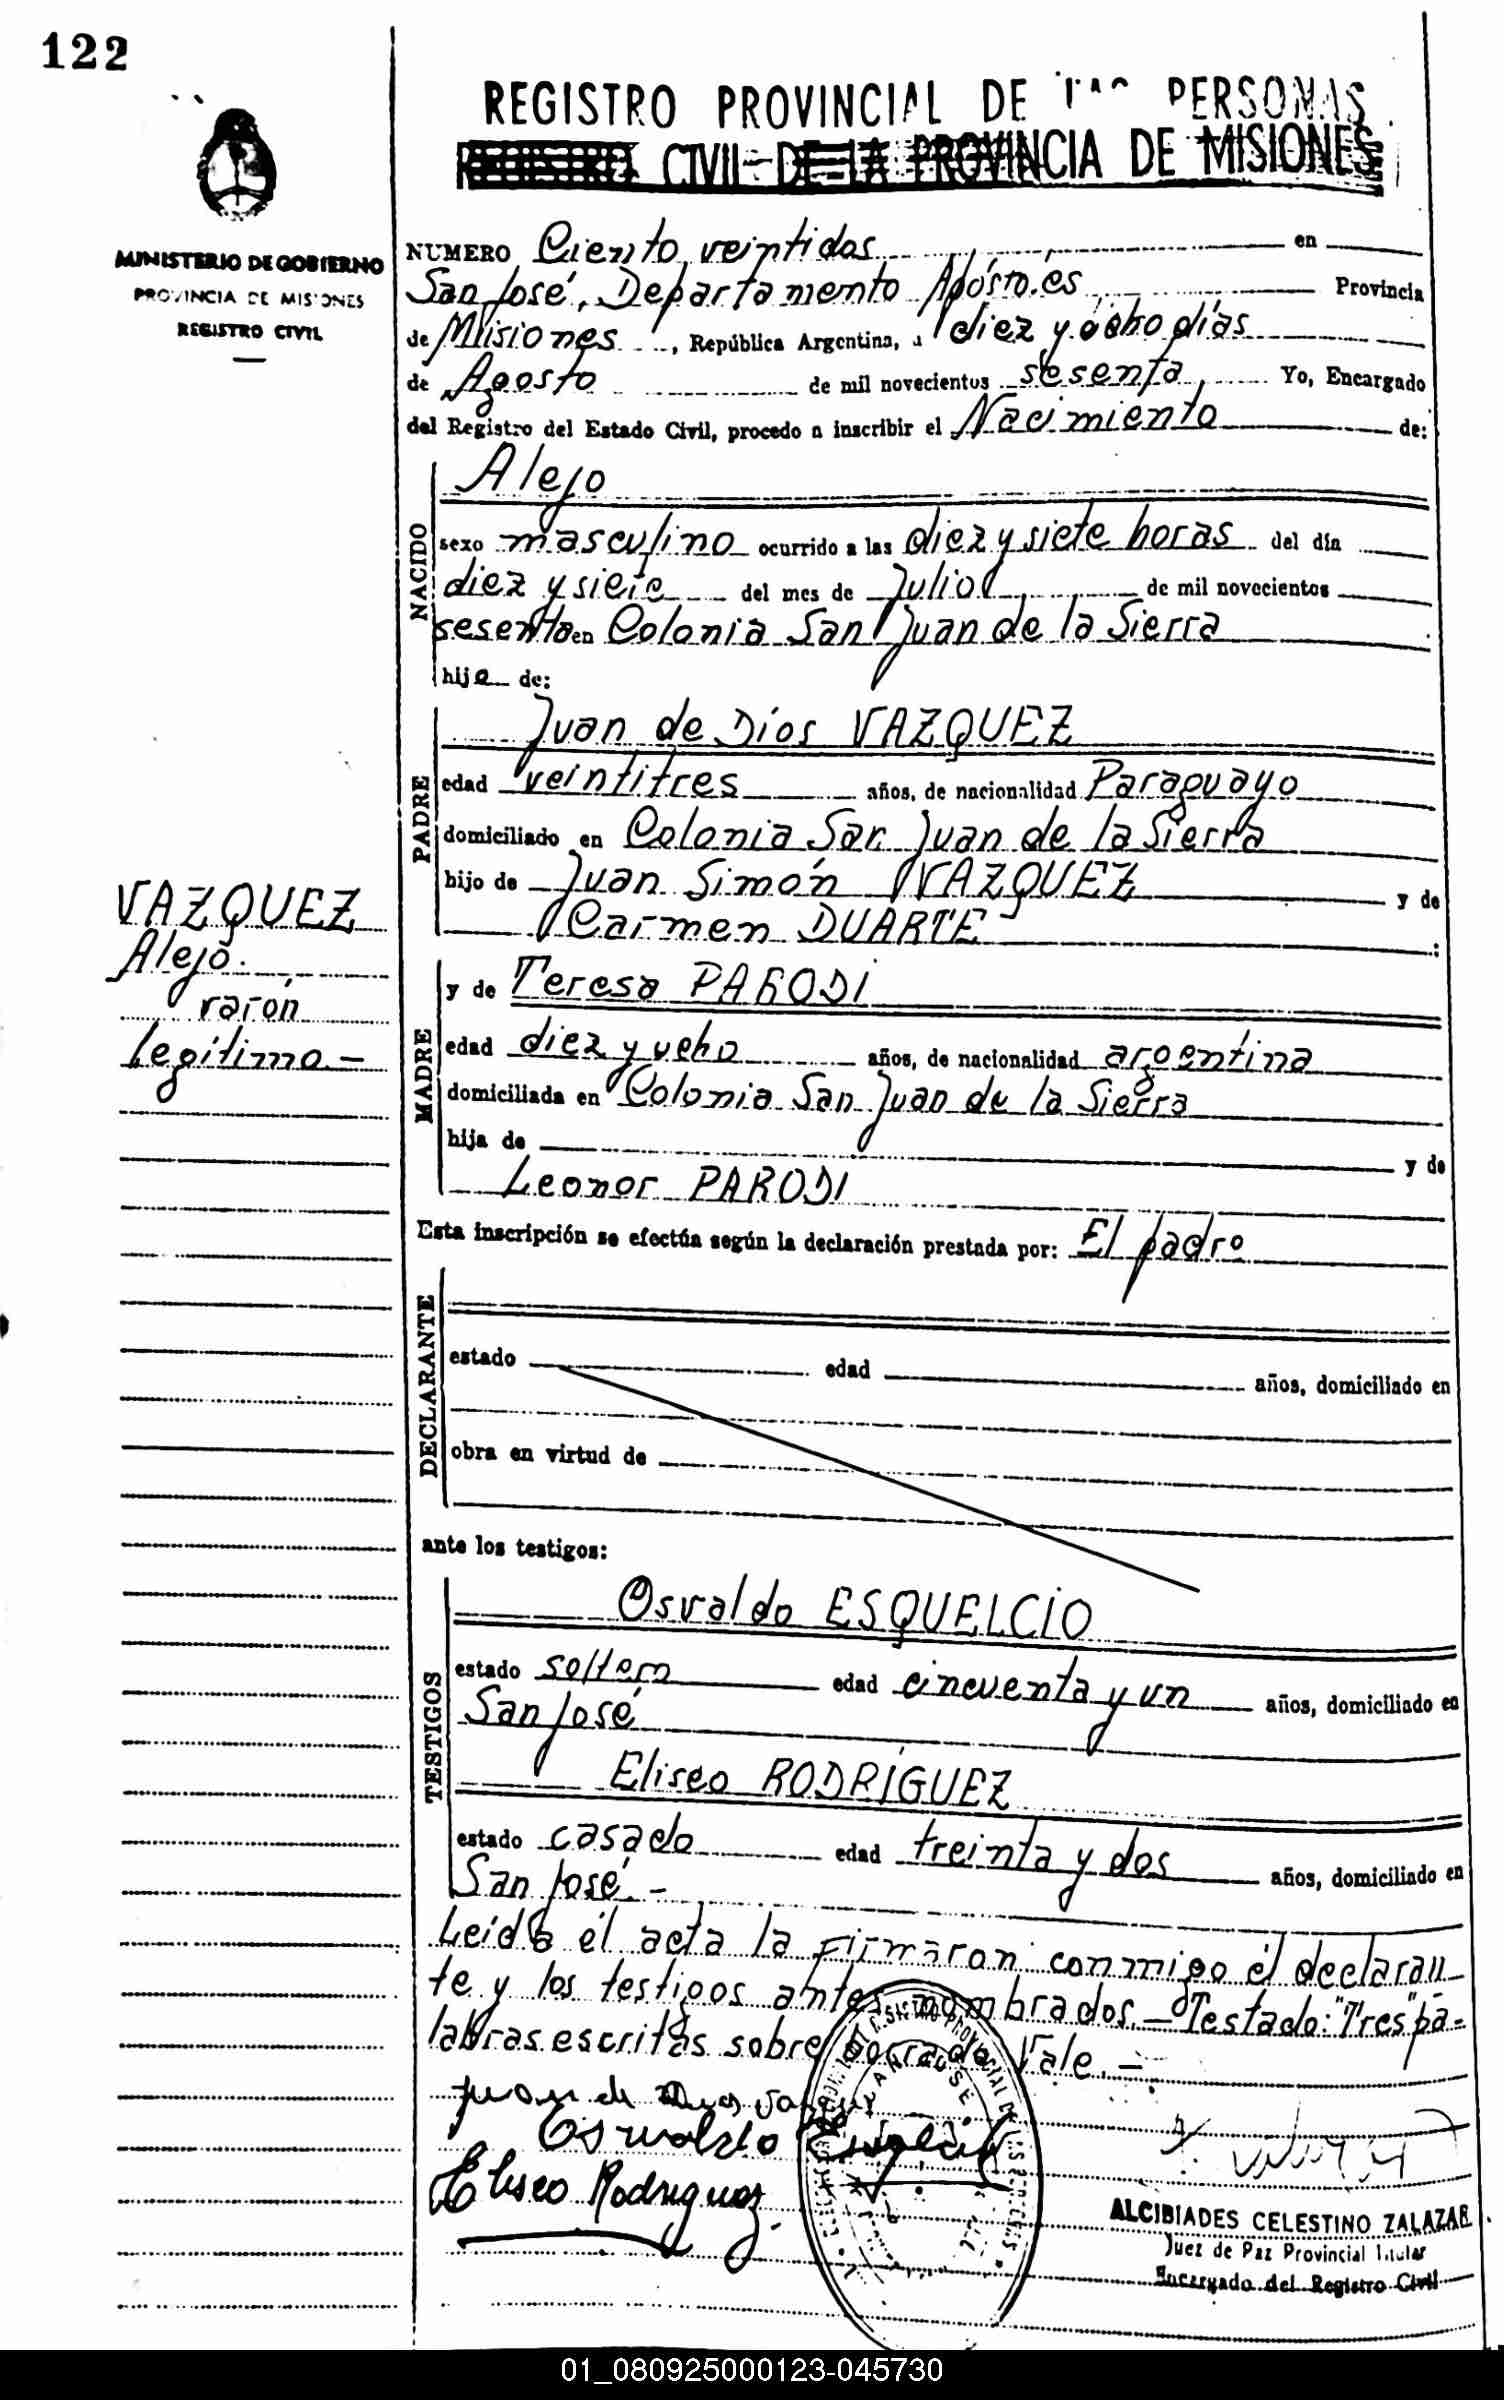 122
REGISTRO PROVINCIAL DE PERSONAS
REGISTRO CIVIL DE LA PROVINCIA DE MISIONES
MINISTERIO DE GOBIERNO
PROVINCIA DE MISIONES
REGISTRO CIVIL
NUMERO Ciento veintidos en
San José, Departamento Apóstoles Provincia
de Misiones, República Argentina, a diez y ocho días
de Agosto de mil novecientos sesenta Yo, Encargado
del Registro del Estado Civil, procedo a inscribir el Nacimiento de:
NACIDO
Alejo
sexo masculino ocurrido a las diez y siete horas del día
diez y siete del mes de Julio de mil novecientos
sesenta en Colonia San Juan de la Sierra
hijo de:
PADRE
Juan de Dios VAZQUEZ
edad veintitres años, de nacionalidad Paraguayo
domiciliado en Colonia San Juan de la Sierra
hijo de Juan Simón VAZQUEZ y de
Carmen DUARTE :
VAZQUEZ
Alejo.
varón
legítimo.-
MADRE
y de Teresa PARODI
edad diez y ocho años, de nacionalidad argentina
domiciliada en Colonia San Juan de la Sierra
hija de y de
Leonor PARODI
Esta inscripción se efectúa según la declaración prestada por: El padre
DECLARANTE
estado edad años, domiciliado en
obra en virtud de
ante los testigos:
TESTIGOS
Osvaldo ESQUELCIO
estado soltero edad cincuenta y un años, domiciliado en
San José
Eliseo RODRÍGUEZ
estado casado edad treinta y dos años, domiciliado en
San José.-
Leída el acta la firmaron conmigo el declaran
te y los testigos antes nombrados.- Testado: "Tres" pa-
labras escritas sobre borrado Vale.-
Juan de Dios Vazquez
Osvaldo
Eliseo Rodriguez
ALCIBIADES CELESTINO ZALAZAR
Juez de Paz Provincial Titular
Encargado del Registro Civil
01_080925000123-045730